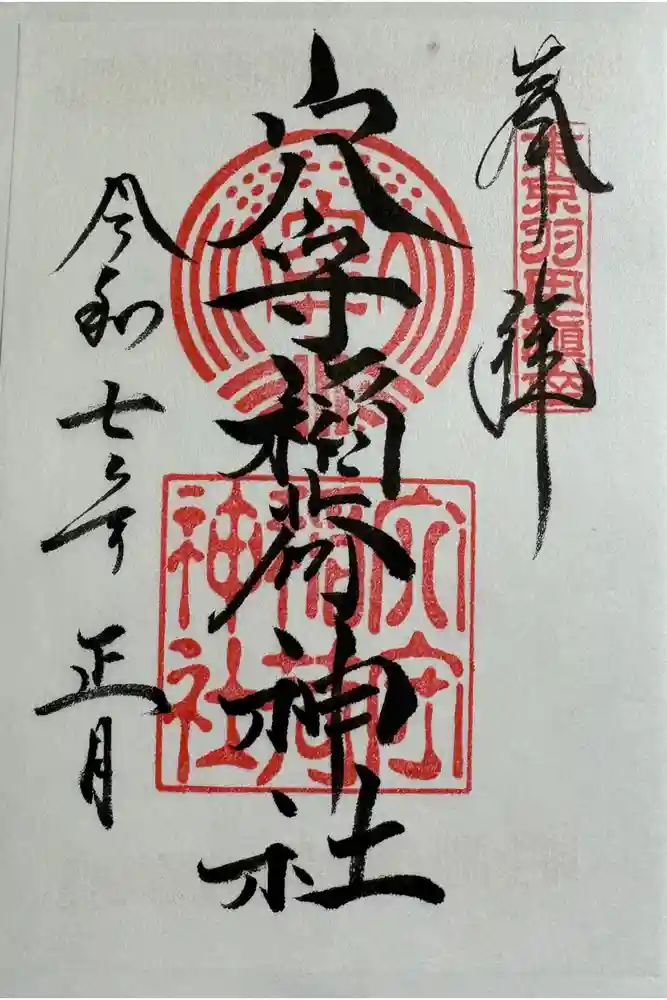 奉拝
東京羽田鎮座
穴守稲荷神社
穴守
稲荷
神社
令和七年 正月